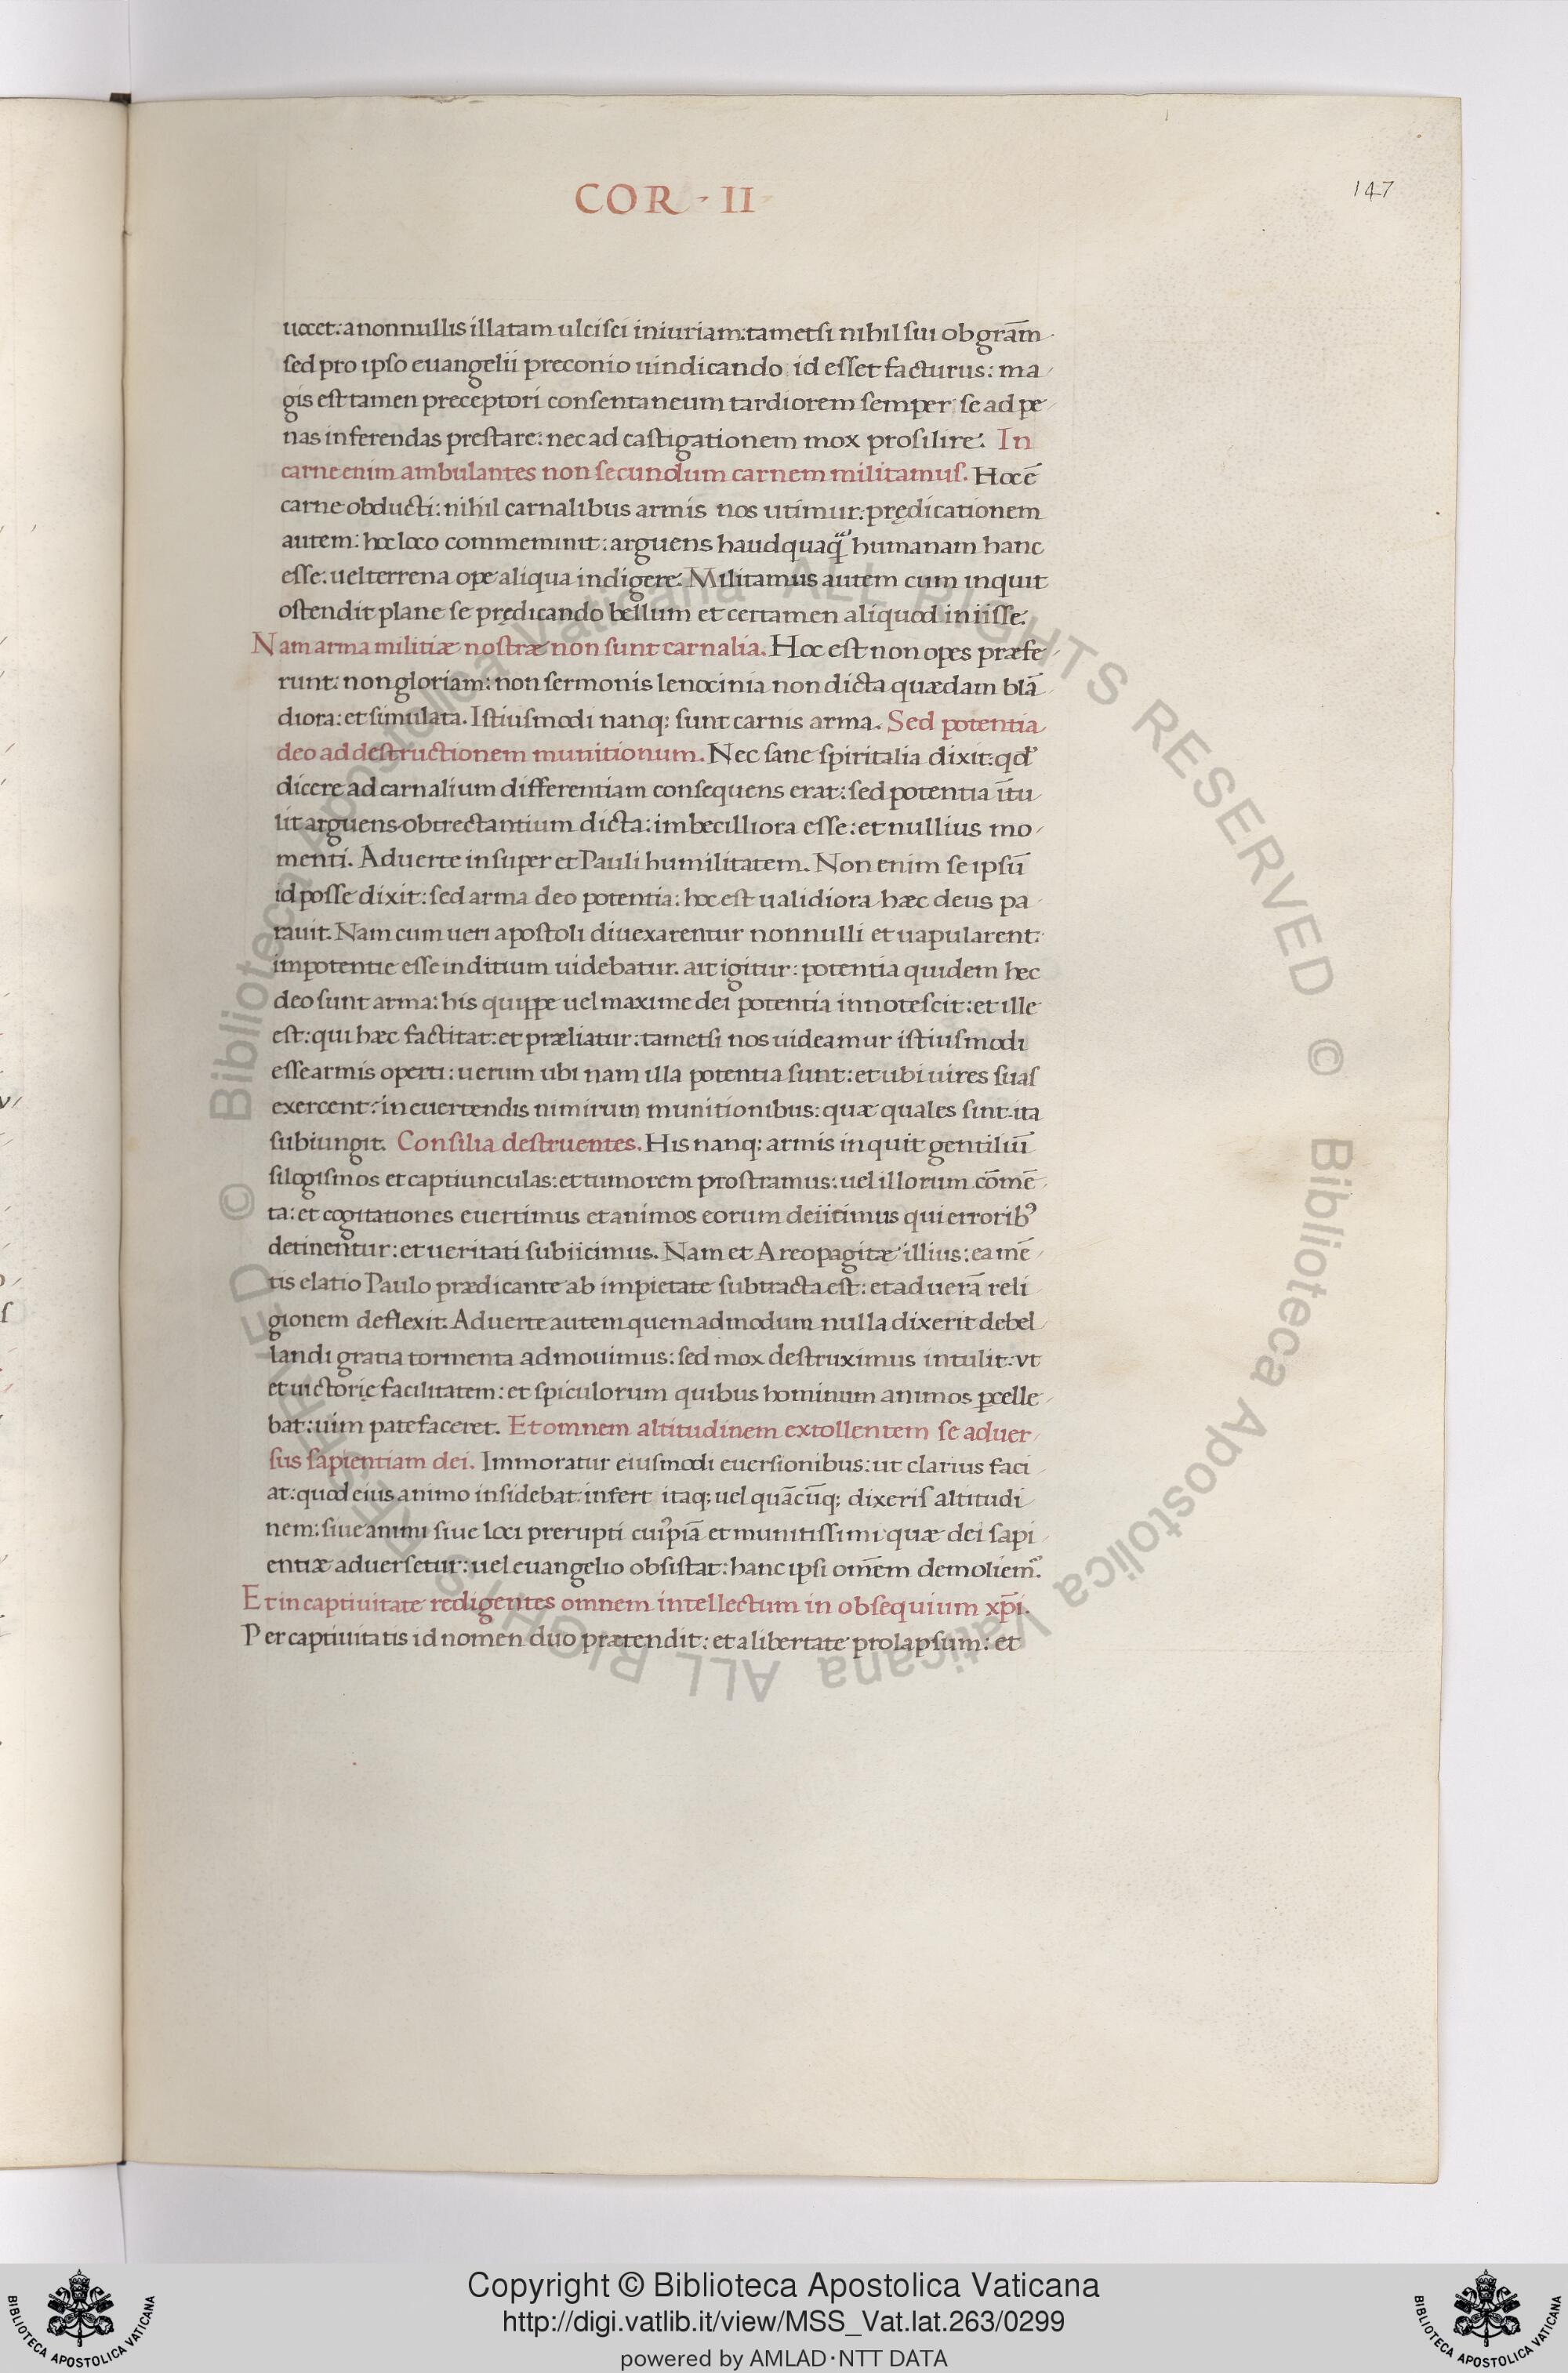 COR · II
147
uocet: a nonnullis illatam ulcisci iniuriam: tametsi nihil sui ob gr̄am
sed pro ipso euangelii preconio uindicando id esset facturus: ma
gis est tamen preceptori consentaneum tardiorem semper se ad pe
nas inferendas prestare: nec ad castigationem mox prosilire. In
carne enim ambulantes non secundum carnem militamus. Hoc ē
carne obducti: nihil carnalibus armis nos utimur. prędicationem
autem: hoc loco commeminit: arguens haudquaq̃ humanam hanc
esse: uel terrena ope aliqua indigere. Militamus autem cum inquit
ostendit plane se prędicando bellum et certamen aliquod iniisse.
Nam arma militiæ nostræ non sunt carnalia. Hoc est non opes præfe
runt: non gloriam: non sermonis lenocinia non dicta quædam blā
diora: et simulata. Istiusmodi nanq; sunt carnis arma. Sed potentia
deo ad destructionem munitionum. Nec sane spiritalia dixit: qd̓
dicere ad carnalium differentiam consequens erat: sed potentia ītu
lit arguens obtrectantium dicta: imbecilliora esse: et nullius mo
menti. Aduerte insuper et Pauli humilitatem. Non enim se ipsū
id posse dixit: sed arma deo potentia: hoc est ualidiora hæc deus pa
rauit. Nam cum ueri apostoli diuexarentur nonnulli et uapularent:
impotentie esse inditium uidebatur. ait igitur: potentia quidem hec
deo sunt arma: his quippe uel maxime dei potentia innotescit: et ille
est: qui hæc factitat: et præliatur: tametsi nos uideamur istiusmodi
esse armis operti: uerum ubi nam illa potentia sunt: et ubi uires suas
exercent: in euertendis nimirum munitionibus: quæ quales sint ita
subiungit. Consilia destruentes. His nanq; armis inquit gentiliū
silogismos et captiunculas: et tumorem prostramus: uel illorum cōmē
ta: et cogitationes euertimus et animos eorum deiicimus qui errorib9
detinentur: et ueritati subiicimus. Nam et Areopagitæ illius: ea mē
tis elatio Paulo prædicante ab impietate subtracta est: et ad uerā reli
gionem deflexit. Aduerte autem quemadmodum nulla dixerit debel
landi gratia tormenta admouimus: sed mox destruximus intulit: vt
et uictorię facilitatem: et spiculorum quibus hominum animos ꝑcelle
bat: uim patefaceret. Et omnem altitudinem extollentem se aduer
sus sapientiam dei. Immoratur eiusmodi euersionibus: ut clarius faci
at: quod eius animo insidebat infert itaq; uel quācūq; dixeris altitudi
nem: siue animi siue loci prerupti cui9piā et munitissimi quæ dei sapi
entiæ aduersetur: uel euangelio obsistat: hanc ipsi om̄em demoliem̃.
Et in captiuitate redigentes omnem intellectum in obsequium xp̄i.
Per captiuitatis id nomen duo prætendit: et a libertate prolapsum: et
© Biblioteca Apostolica Vaticana ALL RIGHTS RESERVED © Biblioteca Apostolica Vaticana ALL RIGHTS RESERVED
Copyright © Biblioteca Apostolica Vaticana
http://digi.vatlib.it/view/MSS_Vat.lat.263/0299
powered by AMLAD·NTT DATA
BIBLIOTECA APOSTOLICA VATICANA
BIBLIOTECA APOSTOLICA VATICANA